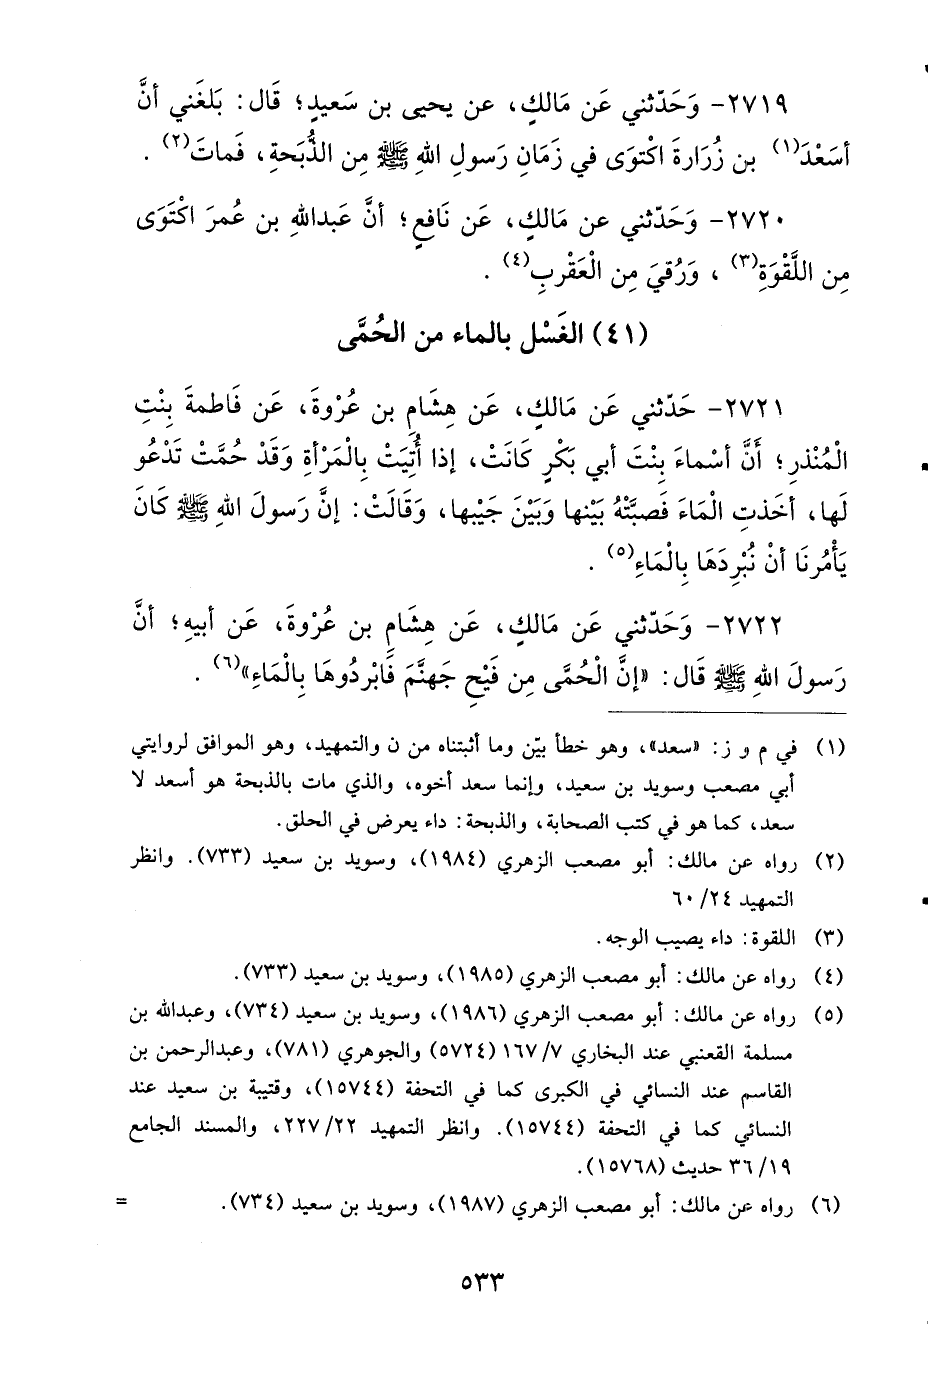 ٢٧١٩- وَحَدّثني عَن مَالكٍ، عن يحيى بن سَعيدٍ؛ قَال: بَلغَني أنَّ
أسَعْدَ(١) بن زُرَارةَ اكْتوَى في زَمَانِ رَسولِ اللهِ ﷺ مِن الذُّبَحةِ، فَماتَ(٢) .
٢٧٢٠- وَحَدّثني عن مَالكٍ، عَن نَافعٍ؛ أنَّ عَبداللهِ بن عُمرَ اكْتَوَى
مِن اللَّقْوَةِ(٣) ، وَرُقيَ مِن الْعَقْربِ(٤) .
(٤١) الغَسْل بالماء من الحُمَّى
٢٧٢١- حَدّثني عَن مَالكٍ، عَن هِشَامِ بن عُرْوةَ، عَن فَاطمةَ بِنْتِ
الْمُنْذرِ؛ أَنَّ أسْماءَ بِنْتَ أبي بَكْرٍ كَانَتْ، إذا أُتِيَتْ بِالْمَرْأةِ وَقَدْ حُمَّتْ تَدْعُو
لَها، أخَذتِ الْمَاءَ فَصبَّتْهُ بَيْنها وَبَيْنَ جَيْبها، وَقَالَتْ: إنَّ رَسولَ اللهِ ﷺ كَانَ
يَأْمُرنَا أنْ نُبْرِدَهَا بِالْمَاءِ(٥) .
٢٧٢٢- وَحَدّثني عَن مَالكٍ، عَن هِشَامِ بن عُرْوةَ، عَن أبيهِ؛ أنَّ
رَسولَ اللهِ ﷺ قَال: «إنَّ الْحُمَّى مِن فَيْحِ جَهنَّمَ فَابْردُوهَا بِالْمَاءِ»(٦) .
(١) في م و ز: «سعد»، وهو خطأ بيّن وما أثبتناه من ن والتمهيد، وهو الموافق لروايتي
أبي مصعب وسويد بن سعيد، وإنما سعد أخوه، والذي مات بالذبحة هو أسعد لا
سعد، كما هو في كتب الصحابة، والذبحة: داء يعرض في الحلق.
(٢) رواه عن مالك: أبو مصعب الزهري (١٩٨٤)، وسويد بن سعيد (٧٣٣). وانظر
التمهيد ٢٤/ ٦٠
(٣) اللقوة: داء يصيب الوجه.
(٤) رواه عن مالك: أبو مصعب الزهري (١٩٨٥)، وسويد بن سعيد (٧٣٣).
(٥) رواه عن مالك: أبو مصعب الزهري (١٩٨٦)، وسويد بن سعيد (٧٣٤)، وعبدالله بن
مسلمة القعنبي عند البخاري ٧/ ١٦٧ (٥٧٢٤) والجوهري (٧٨١)، وعبدالرحمن بن
القاسم عند النسائي في الكبرى كما في التحفة (١٥٧٤٤)، وقتيبة بن سعيد عند
النسائي كما في التحفة (١٥٧٤٤). وانظر التمهيد ٢٢/ ٢٢٧، والمسند الجامع
١٩/ ٣٦ حديث (١٥٧٦٨).
(٦) رواه عن مالك: أبو مصعب الزهري (١٩٨٧)، وسويد بن سعيد (٧٣٤). =
٥٣٣